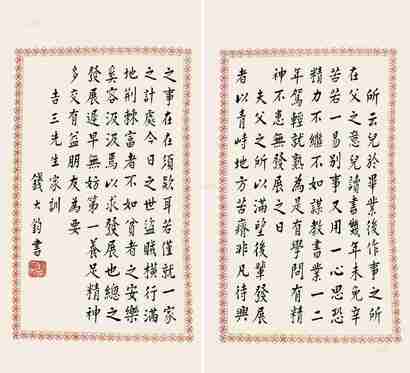 所云兒於畢業後作事之所
在父之意兒讀書幾年未免辛
苦若一易別事又用一心思恐
精力不繼不如謀教書業一二
年駕輕就熟為是有學問有精
神不患無發展之日
夫父之所以滿望後輩發展
者以青峙地方苦瘠非凡待興
之事在在須款耳若僅就一家
之計處今日之世盜賊橫行滿
地荊棘富者不如貧者之安樂
奚容汲汲焉以求發展也總之
發展遲早無妨第一養足精神
多交有益朋友為要
吉三先生家訓
錢大鈞書